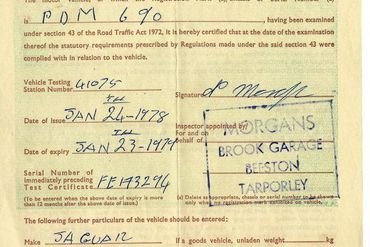 is PDM 690 , having been examined
under section 43 of the Road Traffic Act 1972, it is hereby certified that at the date of the examination
thereof the statutory requirements prescribed by Regulations made under the said section 43 were
complied with in relation to the vehicle.
Vehicle Testing
Station Number 41075
Signature
Date of issue JAN 24TH-1978
Inspector appointed by/
For and on
behalf of
Date of expiry JAN 23TH-1979
MORGANS
BROOK GARAGE
BEESTON
TARPORLEY
Serial Number of
immediately preceding
Test Certificate FE143294
(To be entered when the above date of expiry is more
than 12 months after the date of issue)
(a) Delete as appropriate, chassis or serial number to be shown
only when no registration mark exhibited on vehicle.
The following further particulars of the vehicle should be entered:
Make JAGUAR
If a goods vehicle, unladen weight kg